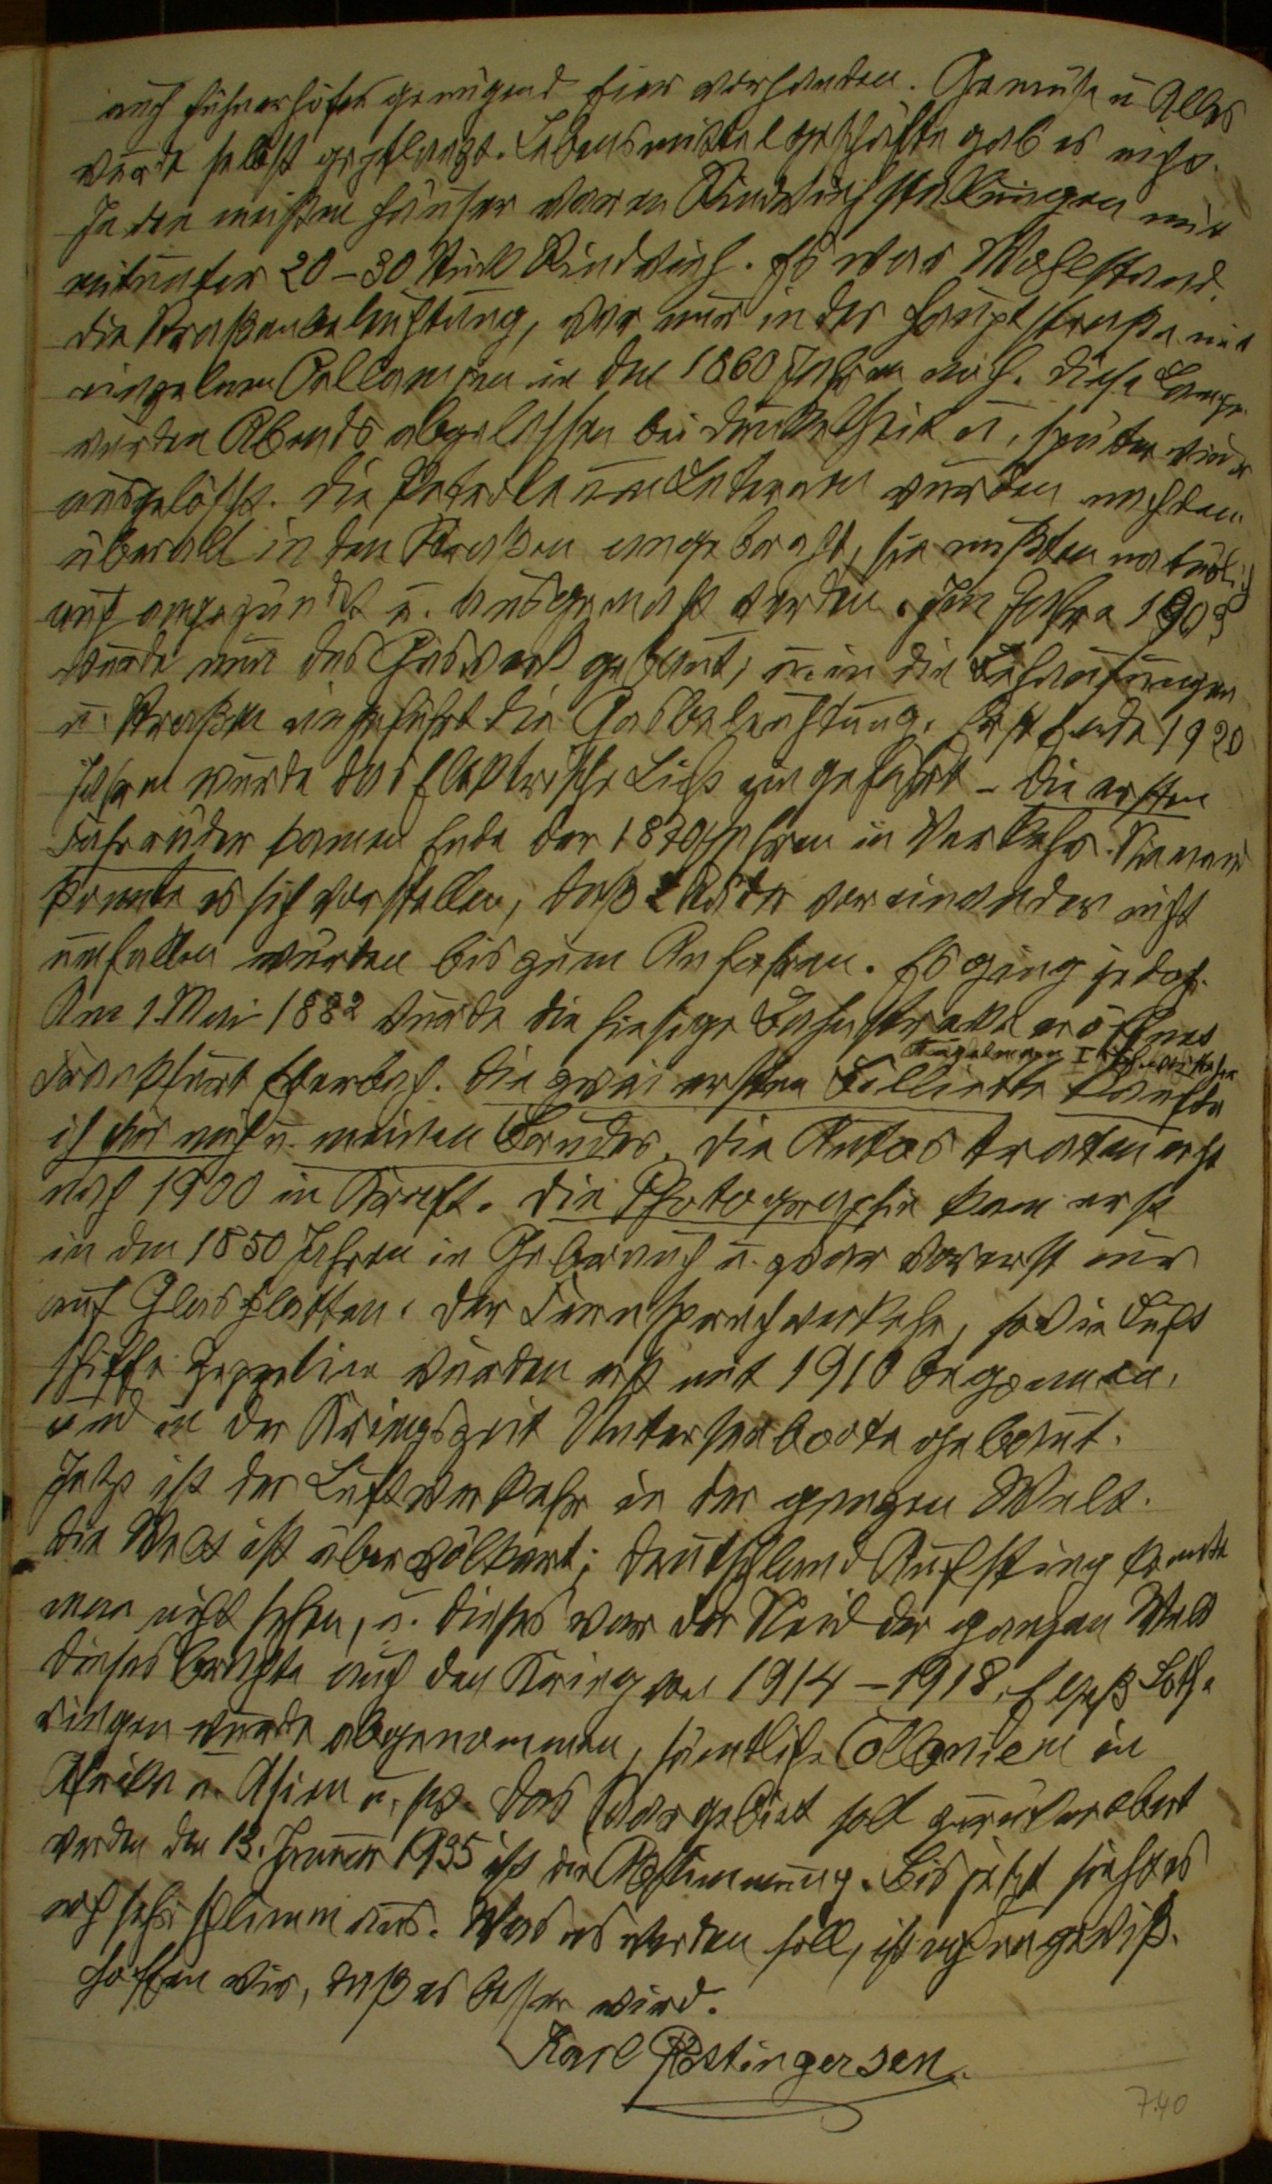 auch Hühnerhöfe genügend hier vorhanden. Gemüse u Alles
wurde selbst gepflanzt. Lebensmittelgeschäfte gab es nicht.
In den meisten Häuser waren Rindviehstallungen mit
mitunter 20–30 Stück Rindvieh. Es war Wohlstand.
die Straßenbeleuchtung, war nur in der Hauptstraße mit
einzelnen Öellampen in den 1860 Jahren noch. diese Lampen
wurden Abends abgelassen bei Dunkelheit u. später wieder
ausgelöscht. die Petroleum Laternen wurden nachdem
überall in den Straßen angebracht, sie mußten natürlich
auch angezündet u. ausgemacht werden. Im Jahre 1903
wurde nun das Gaswerk gebaut, u. in die Behausungen
u. Straßen eingeführt die Gasbeleuchtung. Erst Ende 1920
Jahren wurde das Elektrische Licht eingeführt – die ersten
Fahrräder kamen Ende der 1870 Jahren in Verkehr. Niemand
konnte es sich vorstellen, daß 2 Räder vor einander nicht
umfallen würden bis zum Anfahren. Es ging jedoch.
Am 1. Mai 1882 wurde die hiesige Bahnstrecke eröffnet
Frankfurt Eberbach. die zwei ersten Billiette kaufte
ich für mich u. meinen Bruder. die Autos traten erst
nach 1900 in Kraft. die Photographie kam erst
in den 1850 Jahren in Gebrauch u. zwar vorerst nur
auf Glasplatten. der Fernsprechverkehr, sowie Luft
schiffe Zeppeline wurden erst mit 1910 begonnen,
und in der Kriegszeit Unterseeboote gebaut.
Jetzt ist der Luftverkehr in der ganzen Welt.
die Welt ist übervölkert; Deutschland Aufstieg konnte
man nicht sehen, u. dieses war der Neid der ganzen Welt
dieses brachte auch den Krieg von 1914–1918. Elsaß Loth-
ringen wurde abgenommen, sämtliche Collonien in
Afrika u. Asien u. sw. das Saargebiet soll zurückerobert
werden den 13. Januar 1935 ist die Abstimmung. Bis jetzt sieht es
noch sehr schlimm aus. Was es werden soll, ist noch ungewiß.
hoffen wir, daß es besser wird.
Karl Röttinger sen.
740